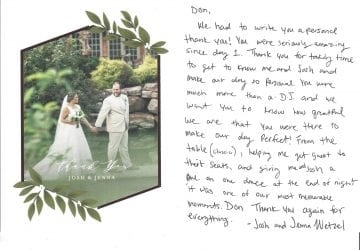 Thank You
JOSH & JENNA
Don,
We had to write you a personal
thank you! You were seriously amazing
since day 1. Thank you for taking time
to get to know me and Josh and
make our day so personal. You were
much more than a DJ and we
want you to know how grateful
we are that you were there to
make our day perfect! From the
table helping me get guest to
their seats, and giving me & Josh a
one on one dance at the end of night
it was one of our most memorable
moments. Don Thank you again for
everything.
- Josh and Jenna Wetzel